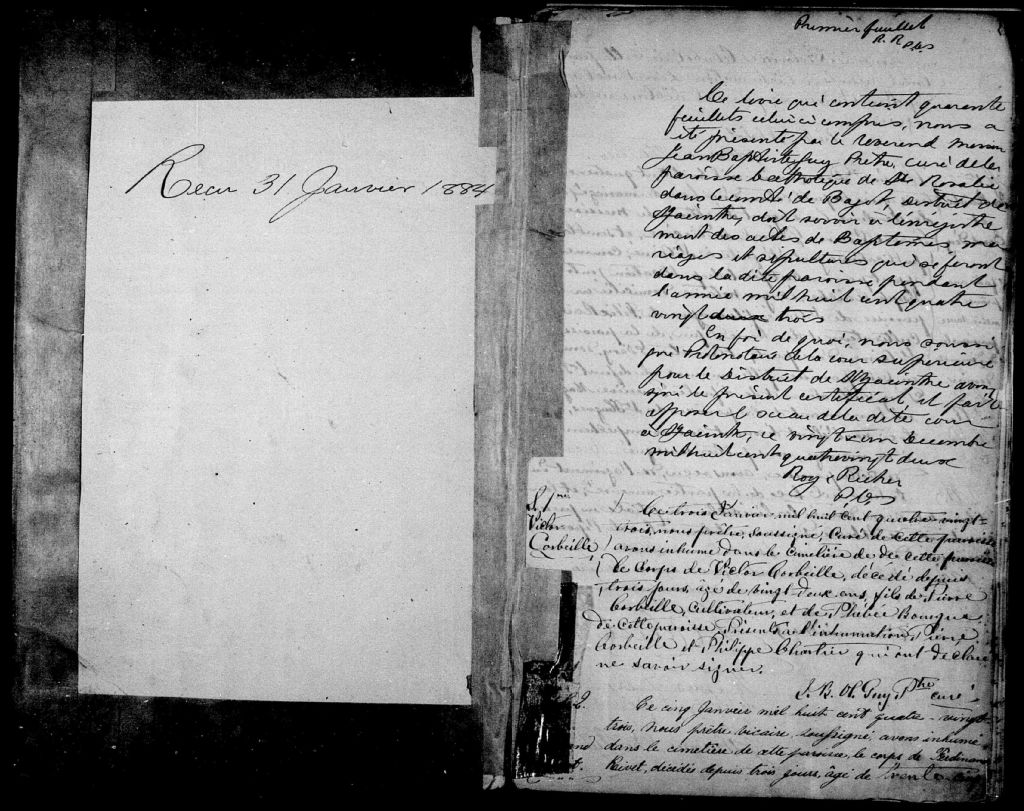 Recu 31 Janvier 1884
Premier feuillet
R. R. P.C.S
Ce livre qui contient quarante
feuillets celui ci compris, nous a
été présenté par le reverend messire
Jean Baptiste Guy Prêtre, curé de la
paroisse Catholique de Ste Rosalie
dans le comté de Bagot, District de
St Hyacinthe, dont savoir à l'énrégistre
ment des actes de Baptemes, ma
riages et sépultures qui se feront
dans la dite paroisse pendant
l'année mil huit cent quatre
vingt deux trois
En foi de quoi, nous soussi
gné Protonotaire de la cour supérieure
pour le District de St Hyacinthe avons
signé le présent certificat et fait
apposer le sceau de la dite cour
à St Hyacinthe, ce vingt un Decembre
mil huit cent quatrevingt deux
Roy & Richer
P.C.S
S. 1
Victor
Corbeille
Le trois Janvier mil huit cent quatre vingt-
trois, nous prêtre, soussigné, Curé de Cette paroisse
avons inhumé dans le Cimetière de de cette paroisse
le Corps de Victor Corbeille, décédé depuis
trois jours, âgé de vingt-deux ans, fils de Pierre
Corbeille, Cultivateur, et de Phébée Bourque,
de Cette paroisse. Présents à l'inhumation, Pierre
Corbeille et Philippe Chartier qui ont déclaré
ne savoir signer.
J. B. Ch. Guy Ptre curé
2.
Ce cinq Janvier mil huit cent quatre-vingt
trois, nous prêtre vicaire, soussigné, avons inhumé
dans le cimetière de cette paroisse, le corps de Ferdinand
Rivet, décédés depuis trois jours, âgé de trente